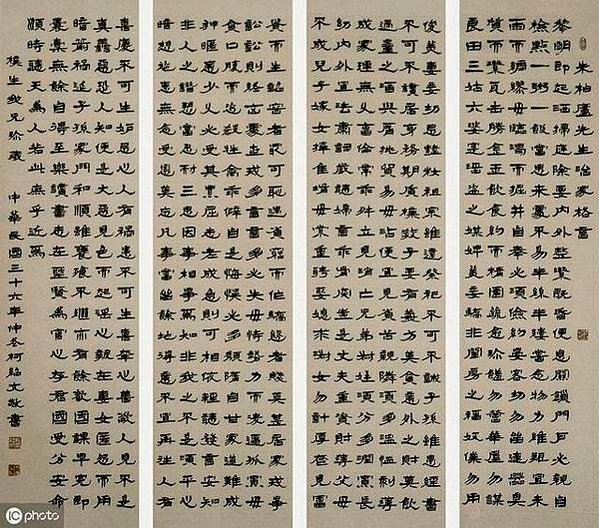 朱柏廬先生治家格言
黎明即起洒掃庭除要內外整潔既昏便息關鎖門戶必親自
檢點一粥一飯當思來處不易半絲半縷恆念物力維艱宜未
雨而綢繆毋臨渴而掘井自奉必須儉約宴客切勿留連器具
質而潔瓦缶勝金玉飲食約而精園蔬愈珍饈勿營華屋勿謀
良田三姑六婆實淫盜之媒婢美妾嬌非閨房之福奴僕勿用
俊美妻妾切忌艷妝祖宗雖遠祭祀不可不誠子孫雖愚經書
不可不讀居身務期質樸教子要有義方莫貪意外之財莫飲
過量之酒與肩挑貿易毋占便宜見貧苦親鄰須多溫恤刻薄
成家理無久享倫常乖舛立見消亡兄弟叔姪須分多潤寡長
幼內外宜法肅詞嚴聽婦言乖骨肉豈是丈夫重貲財薄父母
不成人子嫁女擇佳婿毋索重聘娶媳求淑女勿計厚奩見富
貴而生諂容者最可恥遇貧窮而作驕態者賤莫甚居家戒爭
訟訟則終凶處世戒多言言多必失毋恃勢力而凌逼孤寡毋
貪口腹而恣殺生禽乖僻自是悔誤必多頹惰自甘家道難成
狎暱惡少久必受其累屈志老成急則可相依輕聽發言安知
非人之譖愬當忍耐三思因事相爭焉知非我之不是宜平心
暗想施惠勿念受恩莫忘凡事當留餘地得意不宜再往人有
喜慶不可生妒忌心人有禍患不可生喜幸心善欲人見不是
真善惡恐人知便是大惡見色而起淫心報在妻女匿怨而用
暗箭禍延子孫家門和順雖饔飧不繼亦有餘歡國課早完即
囊橐無餘自得至樂讀書志在聖賢為官心存君國守分安命
順時聽天為人若此庶乎近焉
樸生我兄珍藏 中華民國三十六年仲冬柯紹文敬書
IC photo